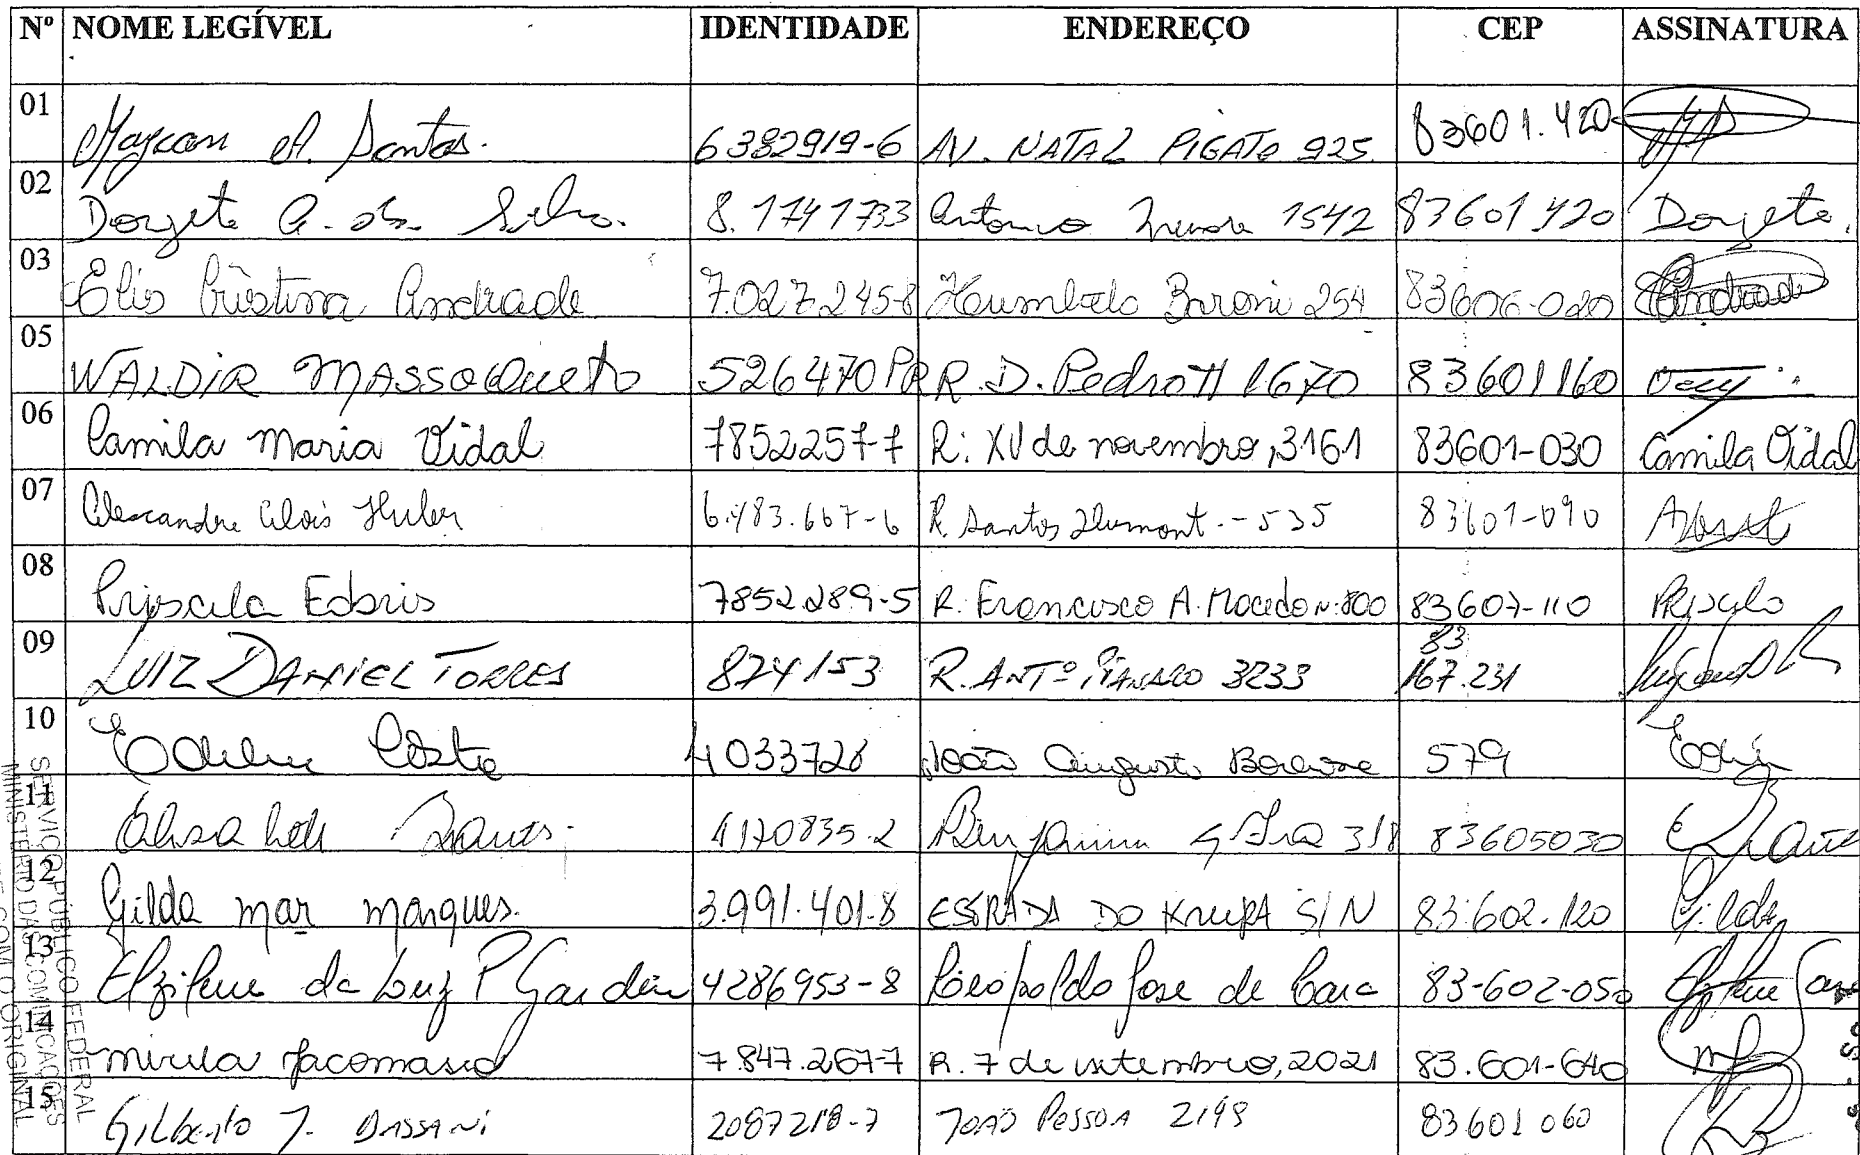 Nº NOME LEGÍVEL IDENTIDADE ENDEREÇO CEP ASSINATURA
01 Maycon A. Santos. 6382919-6 AV. NATAL PIGATO 925 83601.420
02 Dorzete A. da Silva. 8.1741733 Antonio 1542 83601420 Dorzete.
03 Elis Cristina Andrade 7.027.245-8 Humberto Baroni 254 83606-020 Andrade
05 WALDIR MASSOQUETO 526470 PR R. D. Pedro II 1670 83601160
06 Camila Maria Vidal 7852257-7 R: XV de novembro, 3161 83601-030 Camila Vidal
07 Alexandre Alois Huler 6.483.667-6 R. Santos Dumont. - 535 83601-090
08 Pryscila Edoris 7852289-5 R. Francisco A. Macedo N: 800 83607-110 Pryscila
09 LUIZ DANIEL TORRES 824153 R. ANTº 3233 83 167.231
10 Costa 4033726 João Augusto 579
11 4170835-2 Benjamin 318 83605030
12 Gilda mar marques. 3.991.401-8 ESTRADA DO KRUPA S/N 83.602.120 Gilda
13 Elzilene da Luz P Gardin 4286953-8 Leopoldo Jose de 83-602-050
14 mirela Jacomasso 7.847.267-7 R. 7 de setembro, 2021 83.601-640
15 Gilberto J. DASSANi 2087218-7 JOAO PESSOA 2198 83601060
SERVIÇO PÚBLICO FEDERAL
MINISTÉRIO DAS COMUNICAÇÕES
COM O ORIGINAL